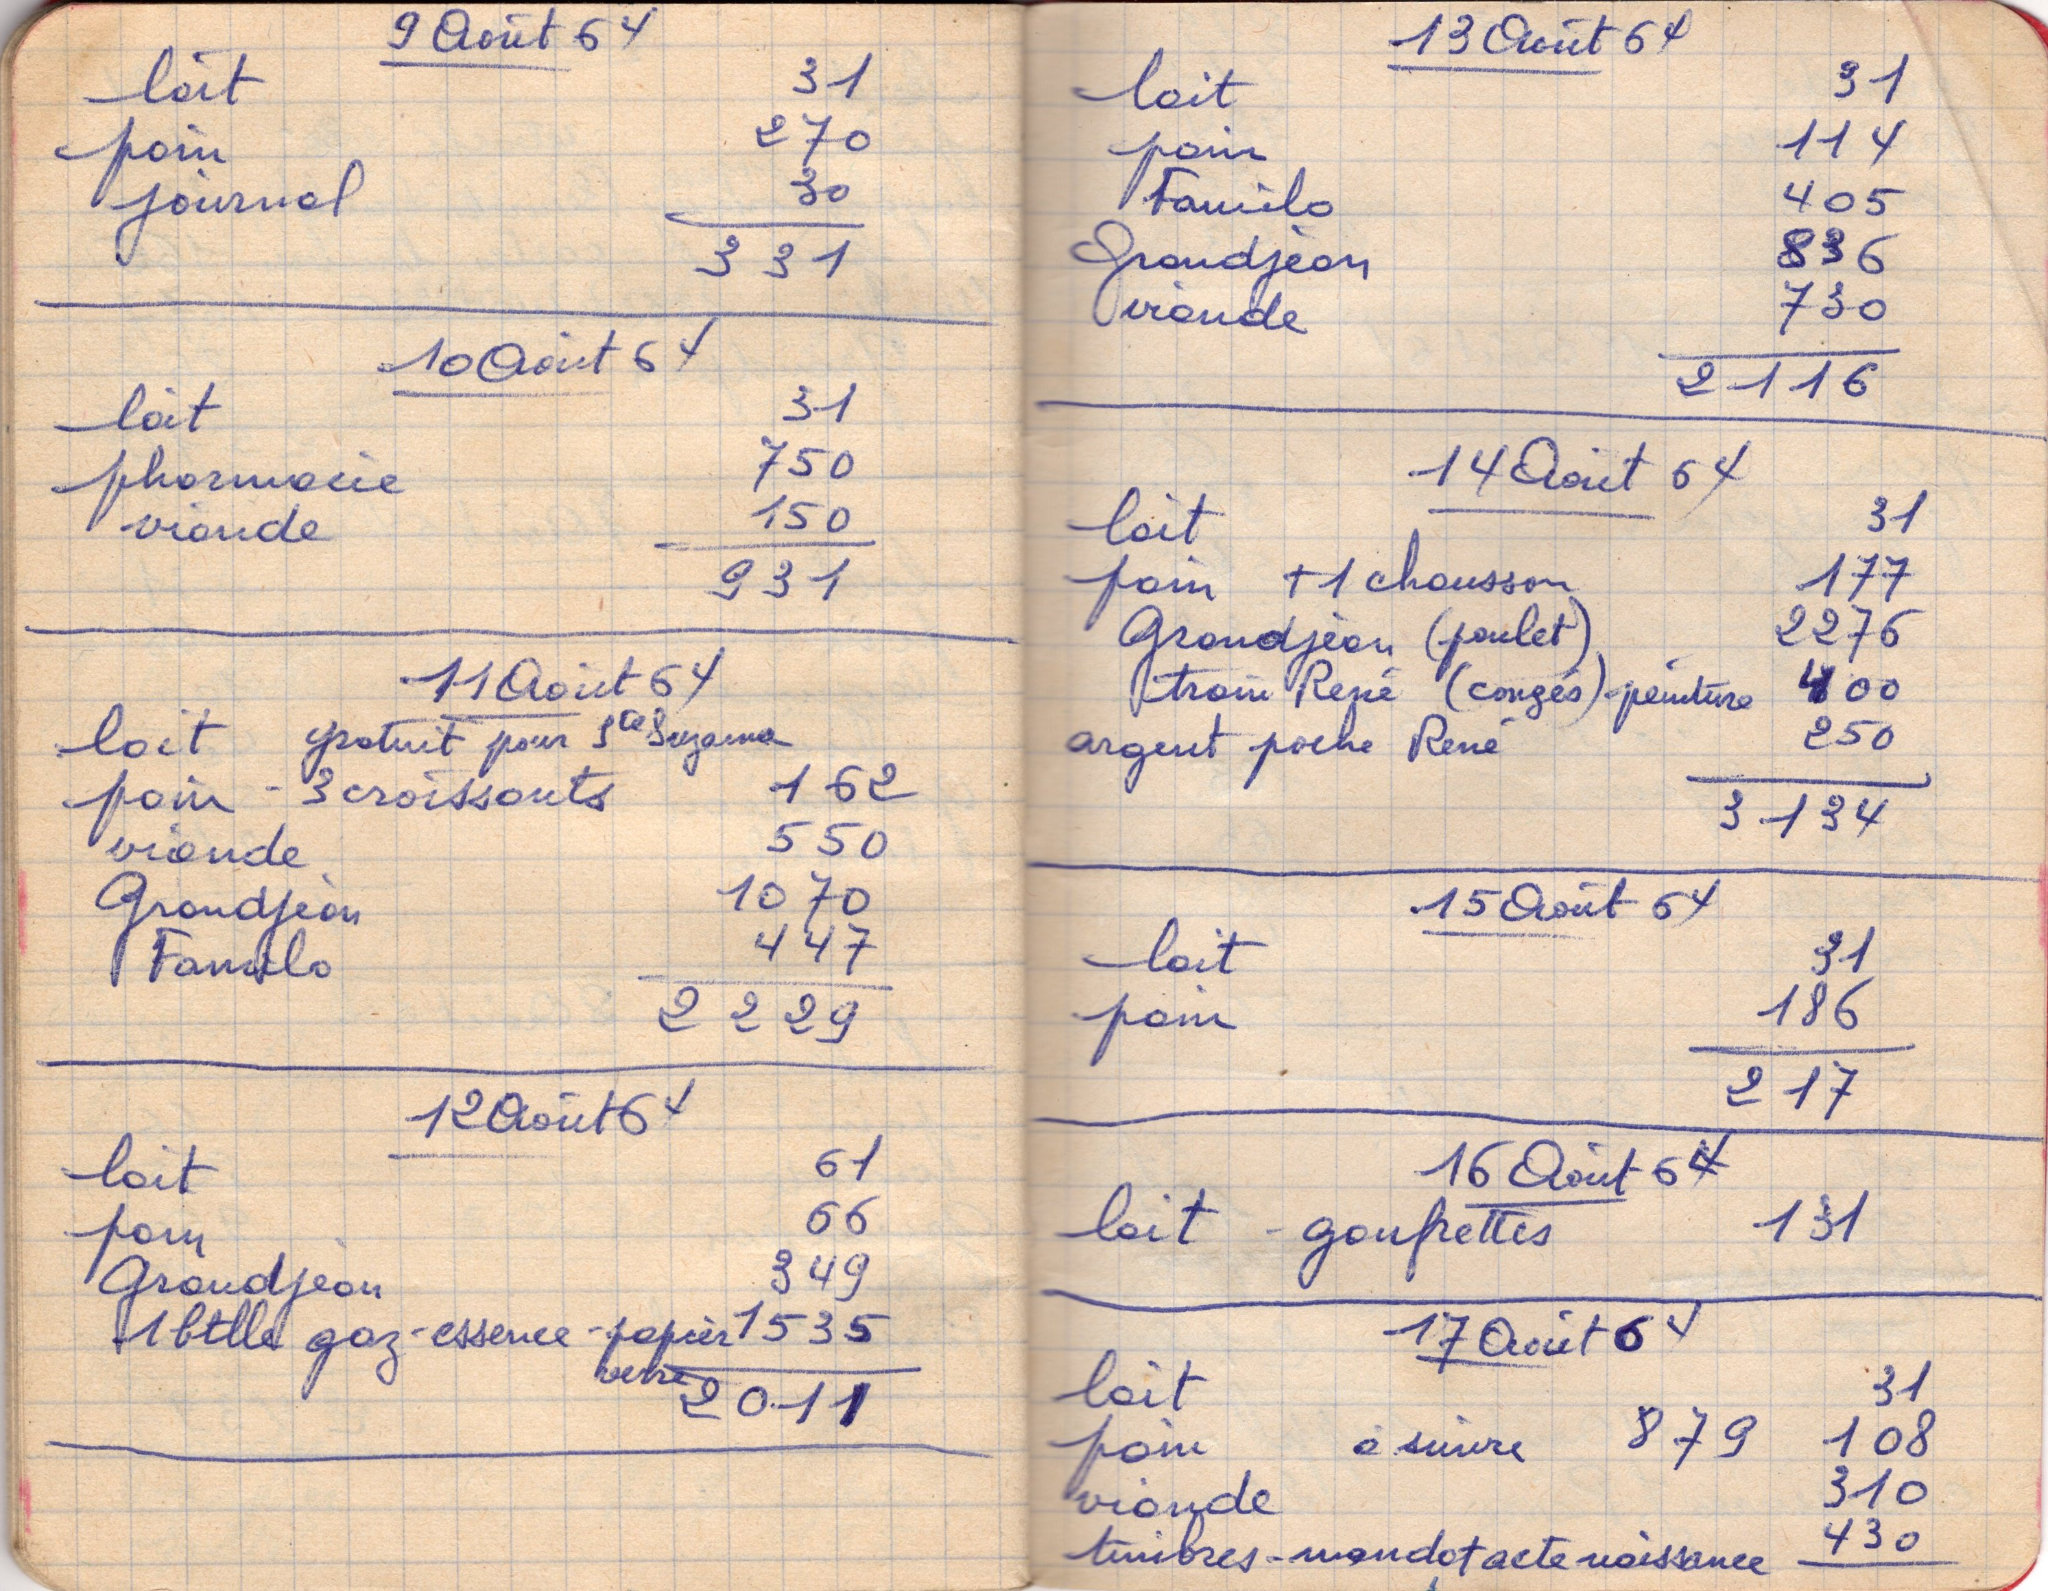 9 Août 64
lait 31
pain 270
journal 30
331
10 Août 64
lait 31
pharmacie 750
viande 150
931
11 Août 64
lait gratuit pour Ste Suzanna
pain - 3 croissants 162
viande 550
Grandjean 1070
Familo 447
2229
12 Août 64
lait 61
pain 66
Grandjean 349
1 btlle gaz - essence - papier 1535
verre
2011
13 Août 64
lait 31
pain 114
Familo 405
Grandjean 836
viande 730
2116
14 Août 64
lait 31
pain +1 chausson 177
Grandjean (poulet) 2276
train René (congés) - peinture 400
argent poche René 250
3134
15 Août 64
lait 31
pain 186
217
16 Août 64
lait - gaufrettes 131
17 Août 64
lait 31
pain à suivre 879 108
viande 310
timbres - mandat acte naissance 430